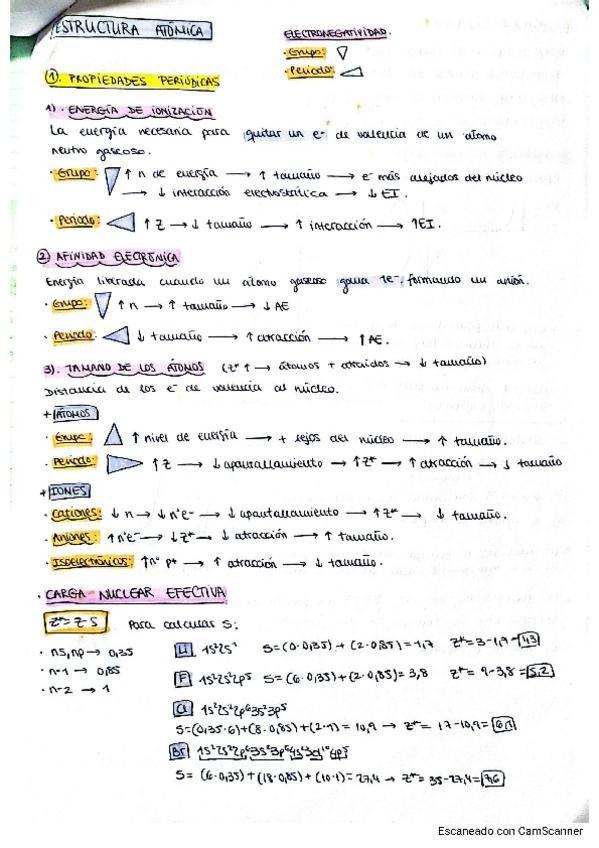 ESTRUCTURA ATÓMICA
ELECTRONEGATIVIDAD.
· Grupo: ▽
· Periodo: ◁
①. PROPIEDADES PERIÓDICAS
1). ENERGÍA DE IONIZACIÓN
La energía necesaria para quitar un e⁻ de valencia de un átomo
neutro gaseoso.
· Grupo: ▽ ↑ n de energía → ↑ tamaño → e⁻ más alejados del núcleo
→ ↓ interacción electrostática → ↓ EI.
· Periodo: ◁ ↑ Z → ↓ tamaño → ↑ interacción → ↑EI.
② AFINIDAD ELECTRÓNICA
Energía liberada cuando un átomo gaseoso gana 1e⁻, formando un anión.
· Grupo: ▽ ↑ n → ↑ tamaño → ↓ AE
· Periodo: ◁ ↓ tamaño → ↑ atracción → ↑ AE.
3). TAMAÑO DE LOS ÁTOMOS (Z* ↑ → átomos + atraídos → ↓ tamaño)
Distancia de los e⁻ de valencia al núcleo.
+ ÁTOMOS
· Grupo: △ ↑ nivel de energía → + lejos del núcleo → ↑ tamaño.
· Periodo: ▷ ↑ Z → ↓ apantallamiento → ↑Z* → ↑ atracción → ↓ tamaño
+ IONES
· Cationes: ↓ n → ↓ nºe⁻ → ↓ apantallamiento → ↑ Z* → ↓ tamaño.
· Aniones: ↑nºe⁻ → ↓Z* → ↓ atracción → ↑ tamaño.
· Isoelectrónicos: ↑nº p⁺ → ↑ atracción → ↓ tamaño.
· CARGA NUCLEAR EFECTIVA
Z* = Z - S Para calcular S:
· ns, np → 0,35
· n-1 → 0,85
· n-2 → 1
Li 1s²2s¹ S = (0·0,35) + (2·0,85) = 1,7 Z* = 3-1,7 = 1,3
F 1s²2s²2p⁵ S = (6·0,35) + (2·0,85) = 3,8 Z* = 9-3,8 = 5,2
Cl 1s²2s²2p⁶3s²3p⁵
S = (0,35·6) + (8·0,85) + (2·1) = 10,9 → Z* = 17-10,9 = 6,1
Br 1s²2s²2p⁶3s²3p⁶4s²3d¹⁰4p⁵
S = (6·0,35) + (18·0,85) + (10·1) = 27,4 → Z* = 35-27,4 = 7,6
Escaneado con CamScanner